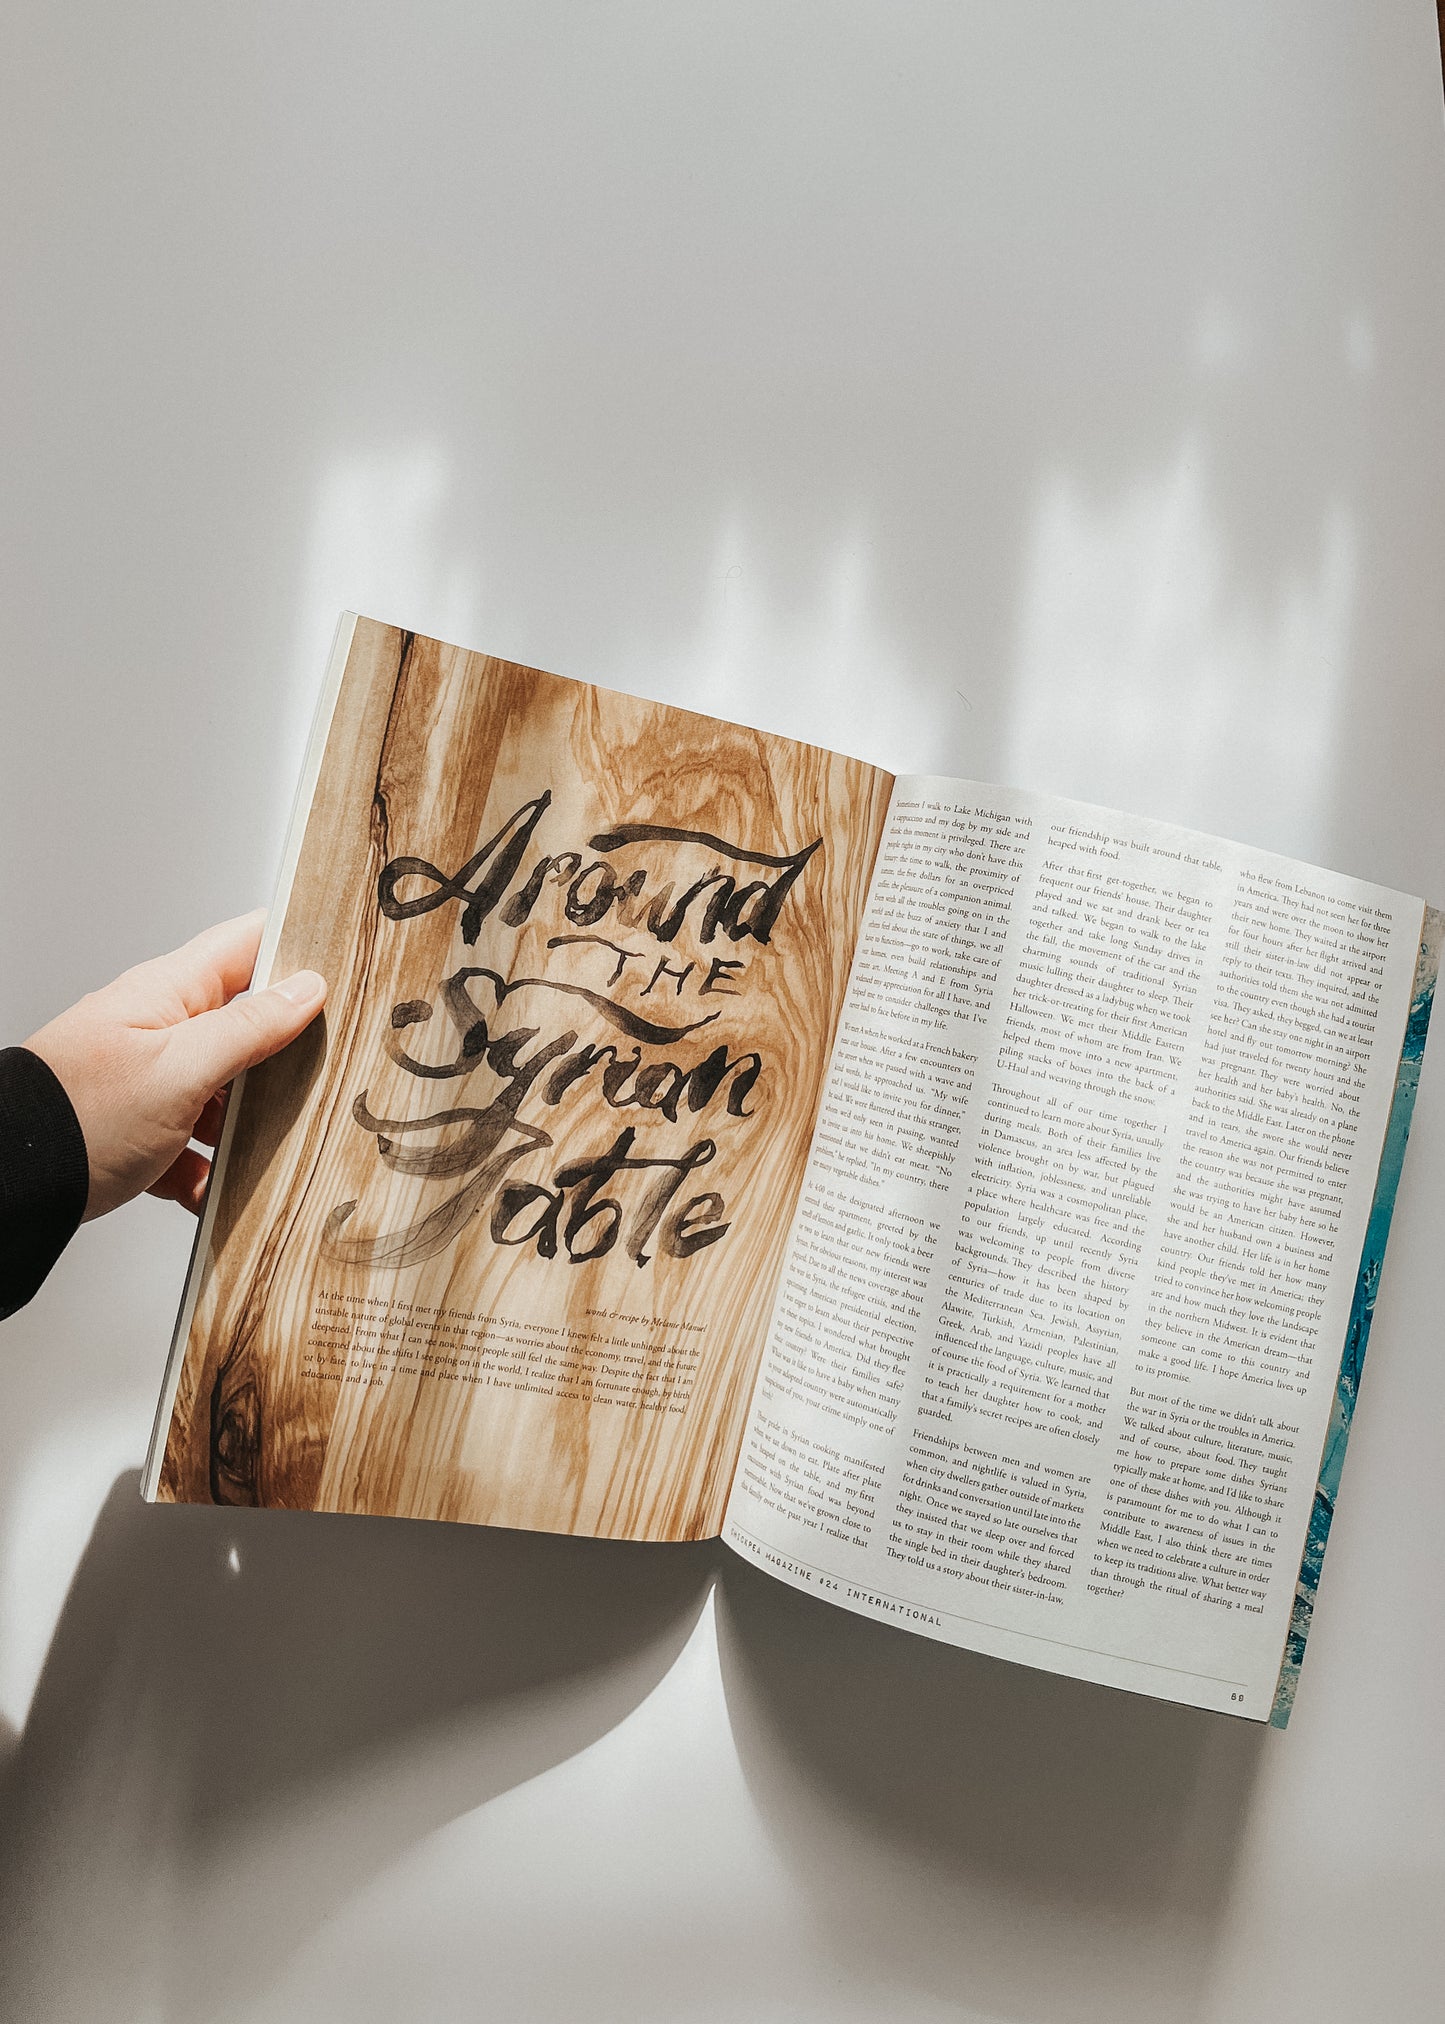 Around
THE
Syrian
Table
words & recipe by Melanie Manuel
At the time when I first met my friends from Syria, everyone I knew felt a little unhinged about the
unstable nature of global events in that region—as worries about the economy, travel, and the future
deepened. From what I can see now, most people still feel the same way. Despite the fact that I am
concerned about the shifts I see going on in the world, I realize that I am fortunate enough, by birth
or by fate, to live in a time and place when I have unlimited access to clean water, healthy food,
education, and a job.
Sometimes I walk to Lake Michigan with
a cappuccino and my dog by my side and
think this moment is privileged. There are
people right in my city who don't have this
luxury: the time to walk, the proximity of
nature, the five dollars for an overpriced
coffee, the pleasure of a companion animal.
Even with all the troubles going on in the
world and the buzz of anxiety that I and
others feel about the state of things, we all
have to function—go to work, take care of
our homes, even build relationships and
create art. Meeting A and E from Syria
widened my appreciation for all I have, and
helped me to consider challenges that I've
never had to face before in my life.
We met A when he worked at a French bakery
near our house. After a few encounters on
the street when we passed with a wave and
kind words, he approached us. "My wife
and I would like to invite you for dinner,"
he said. We were flattered that this stranger,
whom we'd only seen in passing, wanted
to invite us into his home. We sheepishly
mentioned that we didn't eat meat. "No
problem," he replied. "In my country, there
are many vegetable dishes."
At 4:00 on the designated afternoon we
entered their apartment, greeted by the
smell of lemon and garlic. It only took a beer
or two to learn that our new friends were
Syrian. For obvious reasons, my interest was
piqued. Due to all the news coverage about
the war in Syria, the refugee crisis, and the
upcoming American presidential election,
I was eager to learn about their perspective
on these topics. I wondered what brought
my new friends to America. Did they flee
their country? Were their families safe?
What was it like to have a baby when many
in your adopted country were automatically
suspicious of you, your crime simply one of
birth?
Their pride in Syrian cooking manifested
when we sat down to eat. Plate after plate
was heaped on the table, and my first
encounter with Syrian food was beyond
memorable. Now that we've grown close to
this family over the past year I realize that
our friendship was built around that table,
heaped with food.
After that first get-together, we began to
frequent our friends' house. Their daughter
played and we sat and drank beer or tea
and talked. We began to walk to the lake
together and take long Sunday drives in
the fall, the movement of the car and the
charming sounds of traditional Syrian
music lulling their daughter to sleep. Their
daughter dressed as a ladybug when we took
her trick-or-treating for their first American
Halloween. We met their Middle Eastern
friends, most of whom are from Iran. We
helped them move into a new apartment,
piling stacks of boxes into the back of a
U-Haul and weaving through the snow.
Throughout all of our time together I
continued to learn more about Syria, usually
during meals. Both of their families live
in Damascus, an area less affected by the
violence brought on by war, but plagued
with inflation, joblessness, and unreliable
electricity. Syria was a cosmopolitan place,
a place where healthcare was free and the
population largely educated. According
to our friends, up until recently Syria
was welcoming to people from diverse
backgrounds. They described the history
of Syria—how it has been shaped by
centuries of trade due to its location on
the Mediterranean Sea. Jewish, Assyrian,
Alawite, Turkish, Armenian, Palestinian,
Greek, Arab, and Yazidi peoples have all
influenced the language, culture, music, and
of course the food of Syria. We learned that
it is practically a requirement for a mother
to teach her daughter how to cook, and
that a family's secret recipes are often closely
guarded.
Friendships between men and women are
common, and nightlife is valued in Syria,
when city dwellers gather outside of markets
for drinks and conversation until late into the
night. Once we stayed so late ourselves that
they insisted that we sleep over and forced
us to stay in their room while they shared
the single bed in their daughter's bedroom.
They told us a story about their sister-in-law,
who flew from Lebanon to come visit them
in America. They had not seen her for three
years and were over the moon to show her
their new home. They waited at the airport
for four hours after her flight arrived and
still their sister-in-law did not appear or
reply to their texts. They inquired, and the
authorities told them she was not admitted
to the country even though she had a tourist
visa. They asked, they begged, can we at least
see her? Can she stay one night in an airport
hotel and fly out tomorrow morning? She
had just traveled for twenty hours and she
was pregnant. They were worried about
her health and her baby's health. No, the
authorities said. She was already on a plane
back to the Middle East. Later on the phone
and in tears, she swore she would never
travel to America again. Our friends believe
the reason she was not permitted to enter
the country was because she was pregnant,
and the authorities might have assumed
she was trying to have her baby here so he
would be an American citizen. However,
she and her husband own a business and
have another child. Her life is in her home
country. Our friends told her how many
kind people they've met in America; they
tried to convince her how welcoming people
are and how much they love the landscape
in the northern Midwest. It is evident that
they believe in the American dream—that
someone can come to this country and
make a good life. I hope America lives up
to its promise.
But most of the time we didn't talk about
the war in Syria or the troubles in America.
We talked about culture, literature, music,
and of course, about food. They taught
me how to prepare some dishes Syrians
typically make at home, and I'd like to share
one of these dishes with you. Although it
is paramount for me to do what I can to
contribute to awareness of issues in the
Middle East, I also think there are times
when we need to celebrate a culture in order
to keep its traditions alive. What better way
than through the ritual of sharing a meal
together?
CHICKPEA MAGAZINE #24 INTERNATIONAL